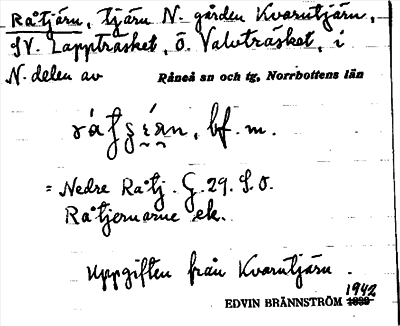 Råtjärn, tjärn N. gården Kvarntjärn,
SV. Lappträsket, Ö. Valvträsket, i
N. delen av Råneå sn och tg, Norrbottens län
bf. m.
= Nedre Råtj. G. 29. S.O.
Råtjernarne ek.
Uppgiften från Kvarntjärn.
1942
EDVIN BRÄNNSTRÖM